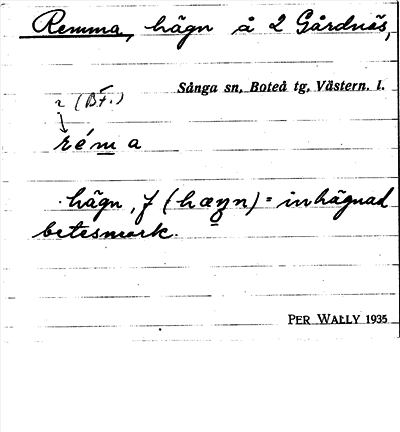 Remma, hägn å 2 Gårdnäs,
Sånga sn, Boteå tg, Västern. l.
r (BF.)
réma
hägn, f (hæŋn) = inhägnad
betesmark.
PER WALLY 1935